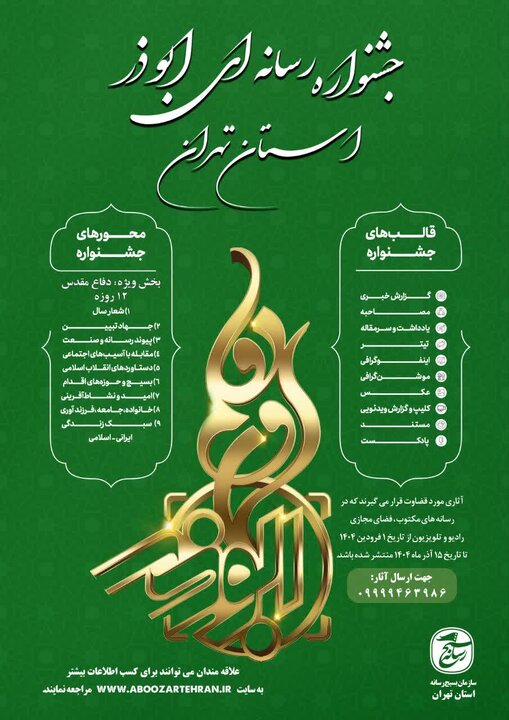 جشنواره رسانه ای ابوذر
استان تهران
قالب‌های
جشنواره
گزارش خبری
مصاحبه
یادداشت و سرمقاله
تیتر
اینفوگرافی
موشن‌گرافی
عکس
کلیپ و گزارش ویدئویی
مستند
پادکست
محورهای
جشنواره
بخش ویژه: دفاع مقدس
۱۲ روزه
۱) شعار سال
۲) جهاد تبیین
۳) پیوند رسانه و صنعت
۴) مقابله با آسیب‌های اجتماعی
۵) دستاوردهای انقلاب اسلامی
۶) بسیج و حوزه‌های اقدام
۷) امید و نشاط آفرینی
۸) خانواده، جامعه، فرزندآوری
۹) سبک زندگی
ایرانی-اسلامی
آثاری مورد قضاوت قرار می گیرند که در
رسانه های مکتوب، فضای مجازی
رادیو و تلویزیون از تاریخ ۱ فرودین ۱۴۰۴
تا تاریخ ۱۵ آذر ماه ۱۴۰۴ منتشر شده باشد.
جهت ارسال آثار:
۰۹۹۹۹۴۶۳۹۸۶
سازمان بسیج رسانه
استان تهران
علاقه مندان می توانند برای کسب اطلاعات بیشتر
به سایت WWW.ABOOZARTEHRAN.IR مراجعه نمایند.